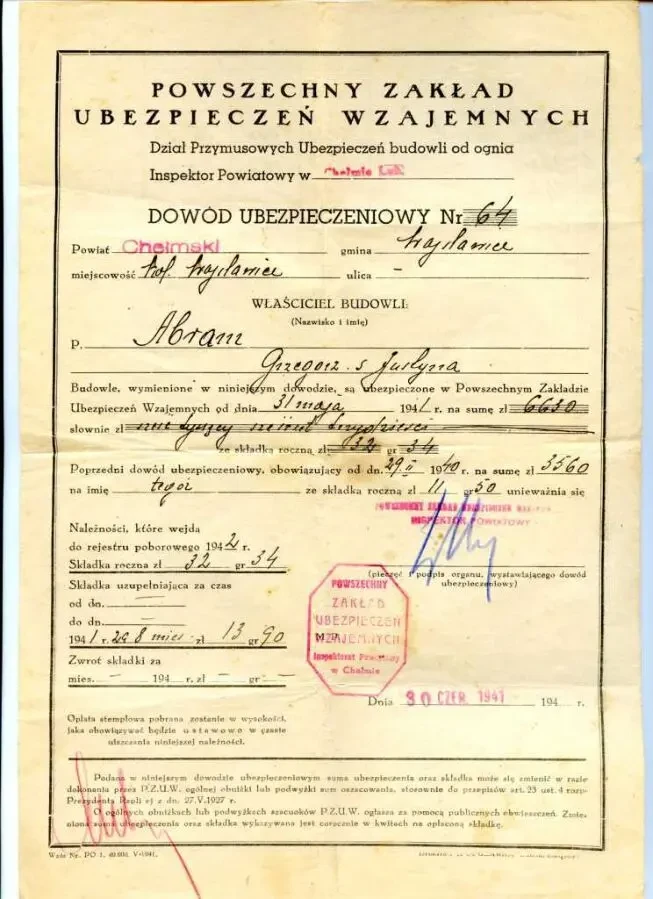 POWSZECHNY ZAKŁAD
UBEZPIECZEŃ WZAJEMNYCH
Dział Przymusowych Ubezpieczeń budowli od ognia
Inspektor Powiatowy w Chełmie Lub.
DOWÓD UBEZPIECZENIOWY Nr 64
Powiat Chełmski gmina Wojsławice
miejscowość kol. Wojsławice ulica —
WŁAŚCICIEL BUDOWLI:
(Nazwisko i imię)
P. Abram
Grzegorz s. Justyna
Budowle, wymienione w niniejszym dowodzie, są ubezpieczone w Powszechnym Zakładzie
Ubezpieczeń Wzajemnych od dnia 31 maja 1941 r. na sumę zł 6650
słownie zł
ze składką roczną zł 32 gr 34
Poprzedni dowód ubezpieczeniowy, obowiązujący od dn. 29.II 1940 r. na sumę zł 3560
na imię tegoż ze składką roczną zł 11 gr 50 unieważnia się
POWSZECHNY ZAKŁAD UBEZPIECZEŃ
INSPEKTOR POWIATOWY
Należności, które wejdą
do rejestru poborowego 1942 r.
Składka roczna zł 32 gr 34
(pieczęć i podpis organu, wystawiającego dowód
ubezpieczeniowy)
Składka uzupełniająca za czas
od dn. —
do dn. —
1941 r. za 8 mies. zł 13 gr 90
Zwrot składki za
mies. — 194 r. zł — gr —
POWSZECHNY
ZAKŁAD
UBEZPIECZEŃ
M.P.
WZAJEMNYCH
Inspektorat Powiatowy
w Chełmie
Dnia 30 CZER. 1941 194 r.
Opłata stemplowa pobrana zostanie w wysokości,
jaka obowiązywać będzie ustawowo w czasie
uiszczania niniejszej należności.
Podana w niniejszym dowodzie ubezpieczeniowym suma ubezpieczenia oraz składka może się zmienić w razie
dokonania przez P.Z.U.W. ogólnej obniżki lub podwyżki sum oszacowania, stosownie do przepisów art. 23 ust. 4 rozp.
Prezydenta Rzplitej z dn. 27.V.1927 r.
O ogólnych obniżkach lub podwyżkach szacunków P.Z.U.W. ogłasza za pomocą publicznych obwieszczeń. Zmieniona suma ubezpieczenia oraz składka wykazywana jest corocznie w kwitach na opłaconą składkę.
Wzór Nr. PO 1. 40.000. V-1941.